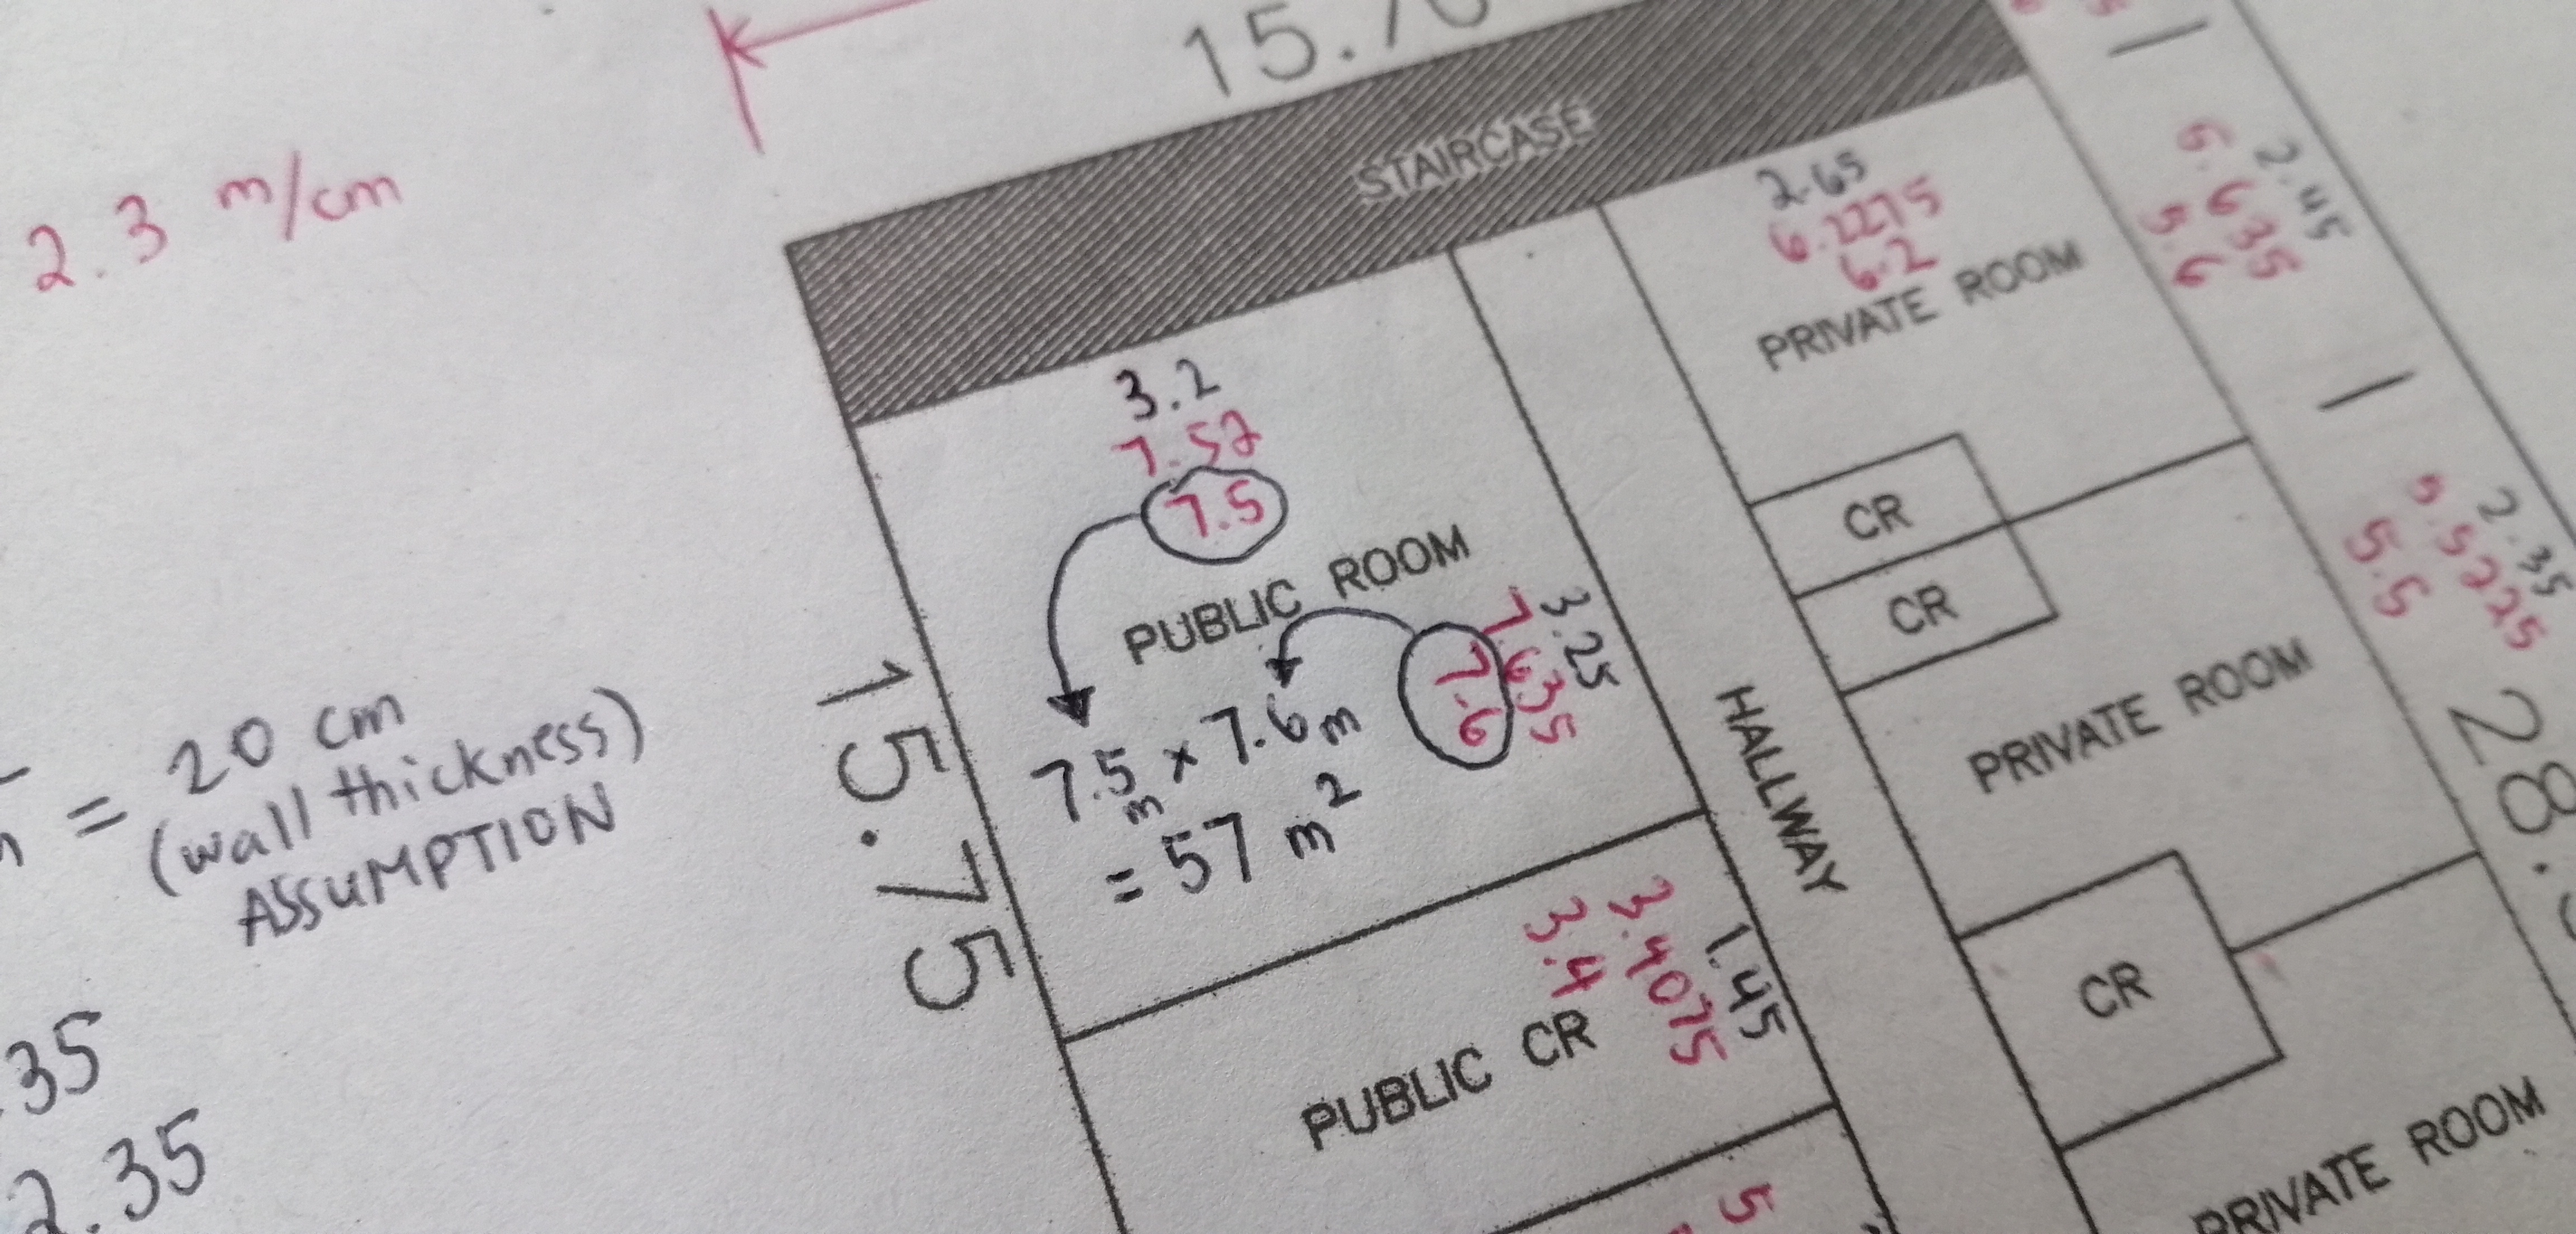 15.70
2.3 m/cm
STAIRCASE
2.65
6.2275
6.2
PRIVATE ROOM
2.45
5.6
3.2
7.52
7.5
PUBLIC ROOM
3.25
7.635
7.6
7.5m x 7.6m
= 57 m²
15.75
CR
CR
HALLWAY
2.35
5.5225
5.5
PRIVATE ROOM
28.
= 20 cm
(wall thickness)
ASSUMPTION
1.45
3.4075
3.4
PUBLIC CR
CR
.35
2.35
5
PRIVATE ROOM